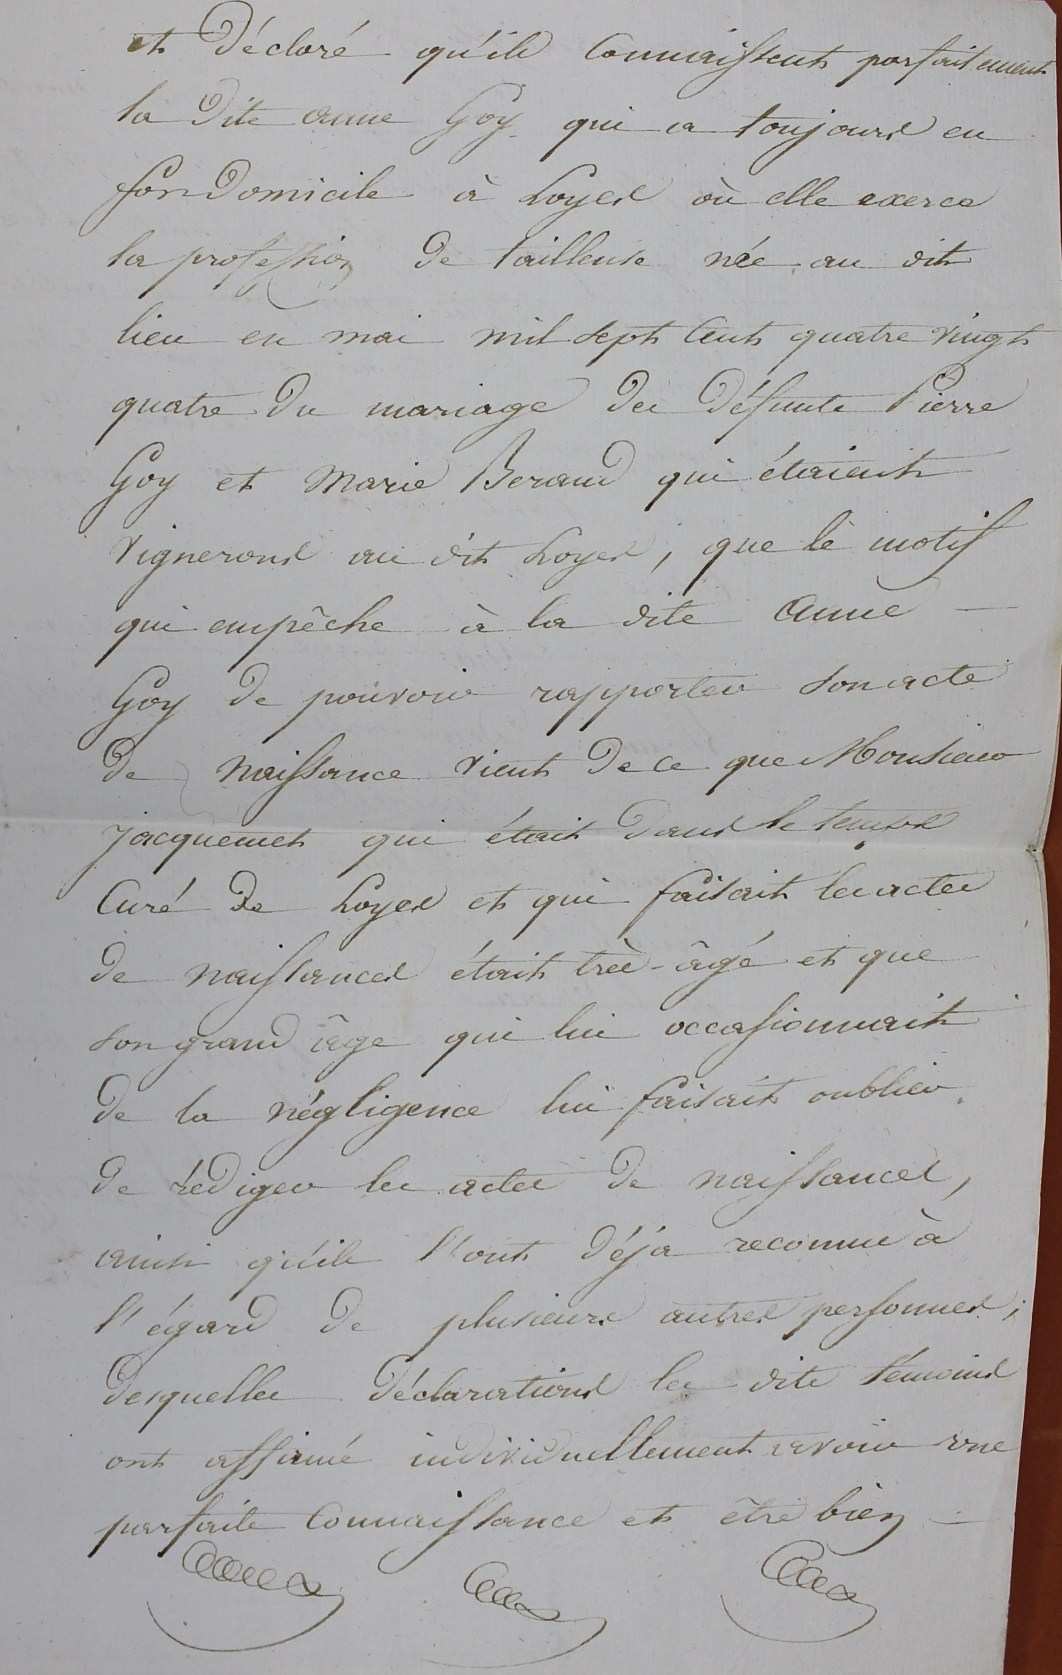 et Déclaré qu'ils Connaissent parfaitement
la Dite anne Goy qui a toujours eu
son Domicile à Loyes où elle exerce
la profession De tailleuse née au dit
lieu en mai mil sept Cent quatre vingt
quatre Du mariage des Défunts Pierre
Goy et Marie Beraud qui étaient
vignerons au dit Loyes, que le motif
qui empêche à la dite anne
Goy de pouvoir rapporter son acte
De Naissance vient De ce que Monsieur
Jacquemet qui était Dans le temps
Curé De Loyes et qui faisait les actes
De naissances était très-âgé et que
son grand âge qui lui occasionnait
De la négligence lui faisait oublier
De rédiger les actes De naissances,
ainsi qu'ils l'ont Déja reconnu à
l'égard De plusieurs autres personnes;
Desquelles Déclarations les dits témoins
ont affirmé individuellement avoir une
parfaite Connaissance et être bien